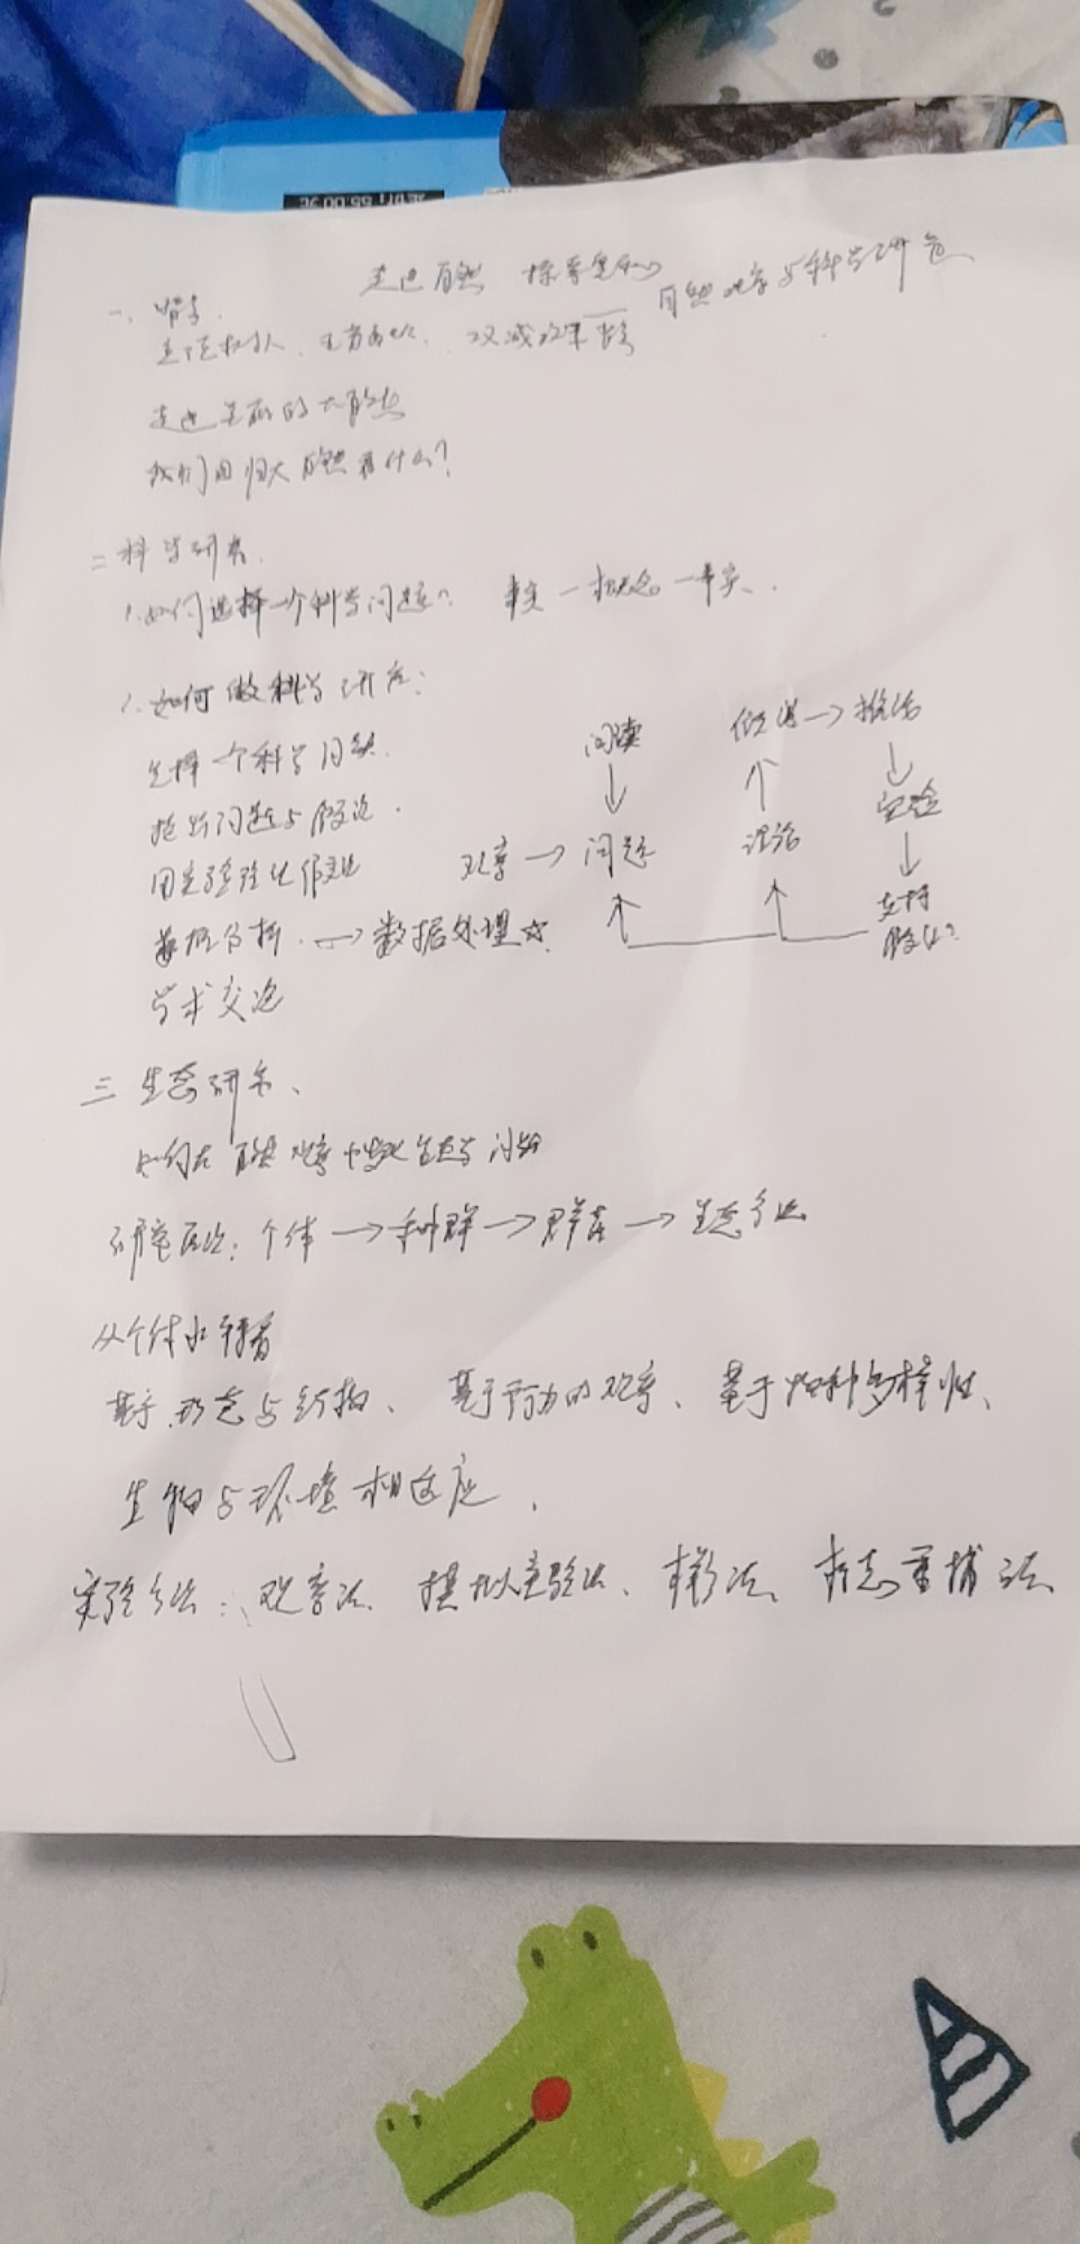 走进自然 探索奥秘
自然观察与科学研究
一、背景
双减政策
走进美丽的大自然
我们回归大自然看什么?
二 科学研究.
1.如何选择一个科学问题? 事实一概念一事实.
2.如何做科学研究:
选择一个科学问题.
提出问题与假设.
用实验验证假设
数据分析. → 数据处理☆.
学术交流
阅读 假说 → 推论
观察 → 问题 理论 实验
支持
假设?
三 生态研究、
如何在自然观察中发现生态学问题
研究层次: 个体 → 种群 → 群落 → 生态系统
从个体水平看
基于形态与结构、 基于行为的观察、 基于物种多样性、
生物与环境相适应.
实验方法: 观察法、 模拟实验法、 样方法、 标志重捕法